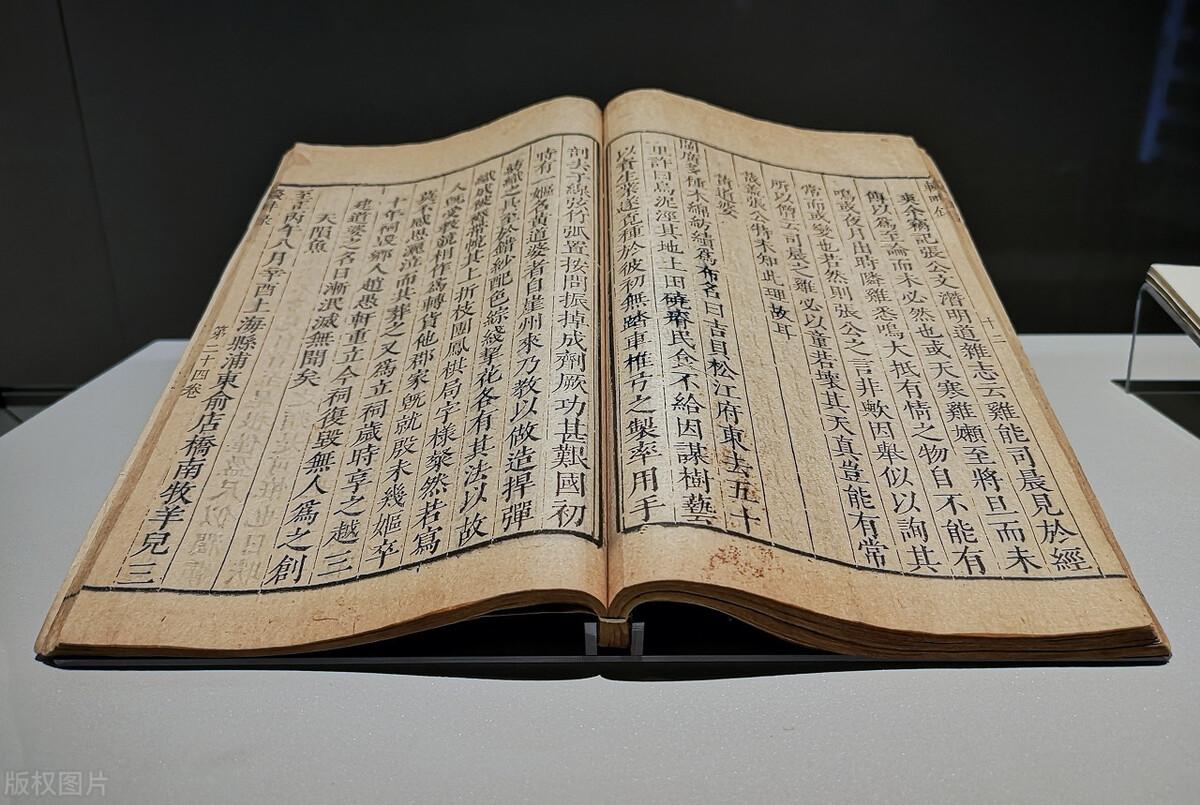 十二
記張公文潛明道雜志云雞能司晨見於經
傳以爲至論而未必然也或天寒雞嬾至將旦而未
鳴或夜月出時隣雞悉鳴大抵有情之物自不能有
常而或變也若然則張公之言非歟因舉似以詢其
所以僧云司晨之雞必以童若壞其天真豈能有常
哉蓋張公特未知此理故耳
黃道婆
閩廣多種木綿紡績爲布名曰吉貝松江府東去五十
里許曰烏泥涇其地土田磽瘠民食不給因謀樹藝
以資生業遂覓種於彼初無踏車椎弓之製率用手
剖去子線弦竹弧置按間振掉成劑厥功甚艱國初
時有一嫗名黃道婆者自崖州來乃教以做造捍彈
紡織之具至於錯紗配色綜綫挈花各有其法以故
織成被褥帶帨其上折枝團鳳棋局字樣粲然若寫
人旣受教競相作爲轉貨他郡家旣就殷未幾嫗卒
莫不感恩洒泣而共葬之又爲立祠歲時享之越三
十年祠毀鄉人趙愚軒重立今祠復毀無人爲之創
建道婆之名日漸泯滅無聞矣
天隕魚
至正丙午八月辛酉上海縣浦東俞店橋南牧羊兒三
第二十四卷
版权图片